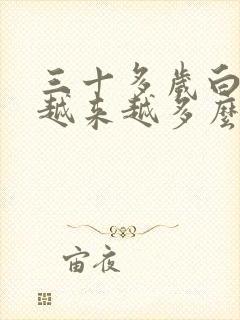 三十多歲白
越来越多麼
宙夜